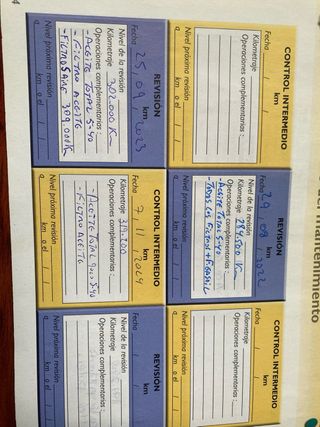 4
del mantenimiento
CONTROL INTERMEDIO
km
Fecha / /
Kilometraje
Operaciones complementarias :
Nivel próxima revisión
a km o el / /
REVISIÓN
km
Fecha 29 08 2022
Nivel de la revisión
Kilometraje 284.500 K
Operaciones complementarias :
- ACEITE TOTAL 5-40
- TODOS LOS FILTROS +
Nivel próxima revisión
a km o el / /
CONTROL INTERMEDIO
km
Fecha / /
Kilometraje
Operaciones complementarias :
Nivel próxima revisión
a km o el / /
REVISIÓN
km
Fecha 25, 09, 2023
Nivel de la revisión
Kilometraje 301.000 K
Operaciones complementarias :
- ACEITE TOTAL 5-40
- FILTRO ACEITE
- FILTRO AIRE 309.000K
Nivel próxima revisión
a km o el / /
CONTROL INTERMEDIO
km
Fecha 7/ 11 / 2024
Kilometraje 319.200
Operaciones complementarias :
- ACEITE TOTAL 9000 5-40
- FILTRO ACEITE
Nivel próxima revisión
a km o el / /
REVISIÓN
km
Fecha / /
Nivel de la revisión
Kilometraje
Operaciones complementarias :
Nivel próxima revisión
a km o el / /